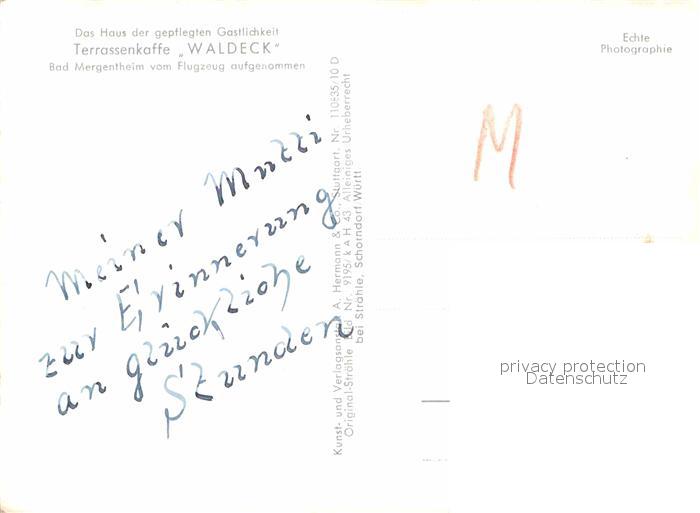 Das Haus der gepflegten Gastlichkeit
Terrassenkaffe „WALDECK“
Bad Mergentheim vom Flugzeug aufgenommen
Echte
Photographie
M
Meiner Mutti
zur Erinnerung
an glückliche
Stunden
Kunst- und Verlagsanstalt A. Hermann & Co., Stuttgart, Nr. 110835/10 D
Original-Strähle Bild Nr. 9195/k A H 43 Alleiniges Urheberrecht
bei Strähle, Schorndorf Württ
privacy protection
Datenschutz